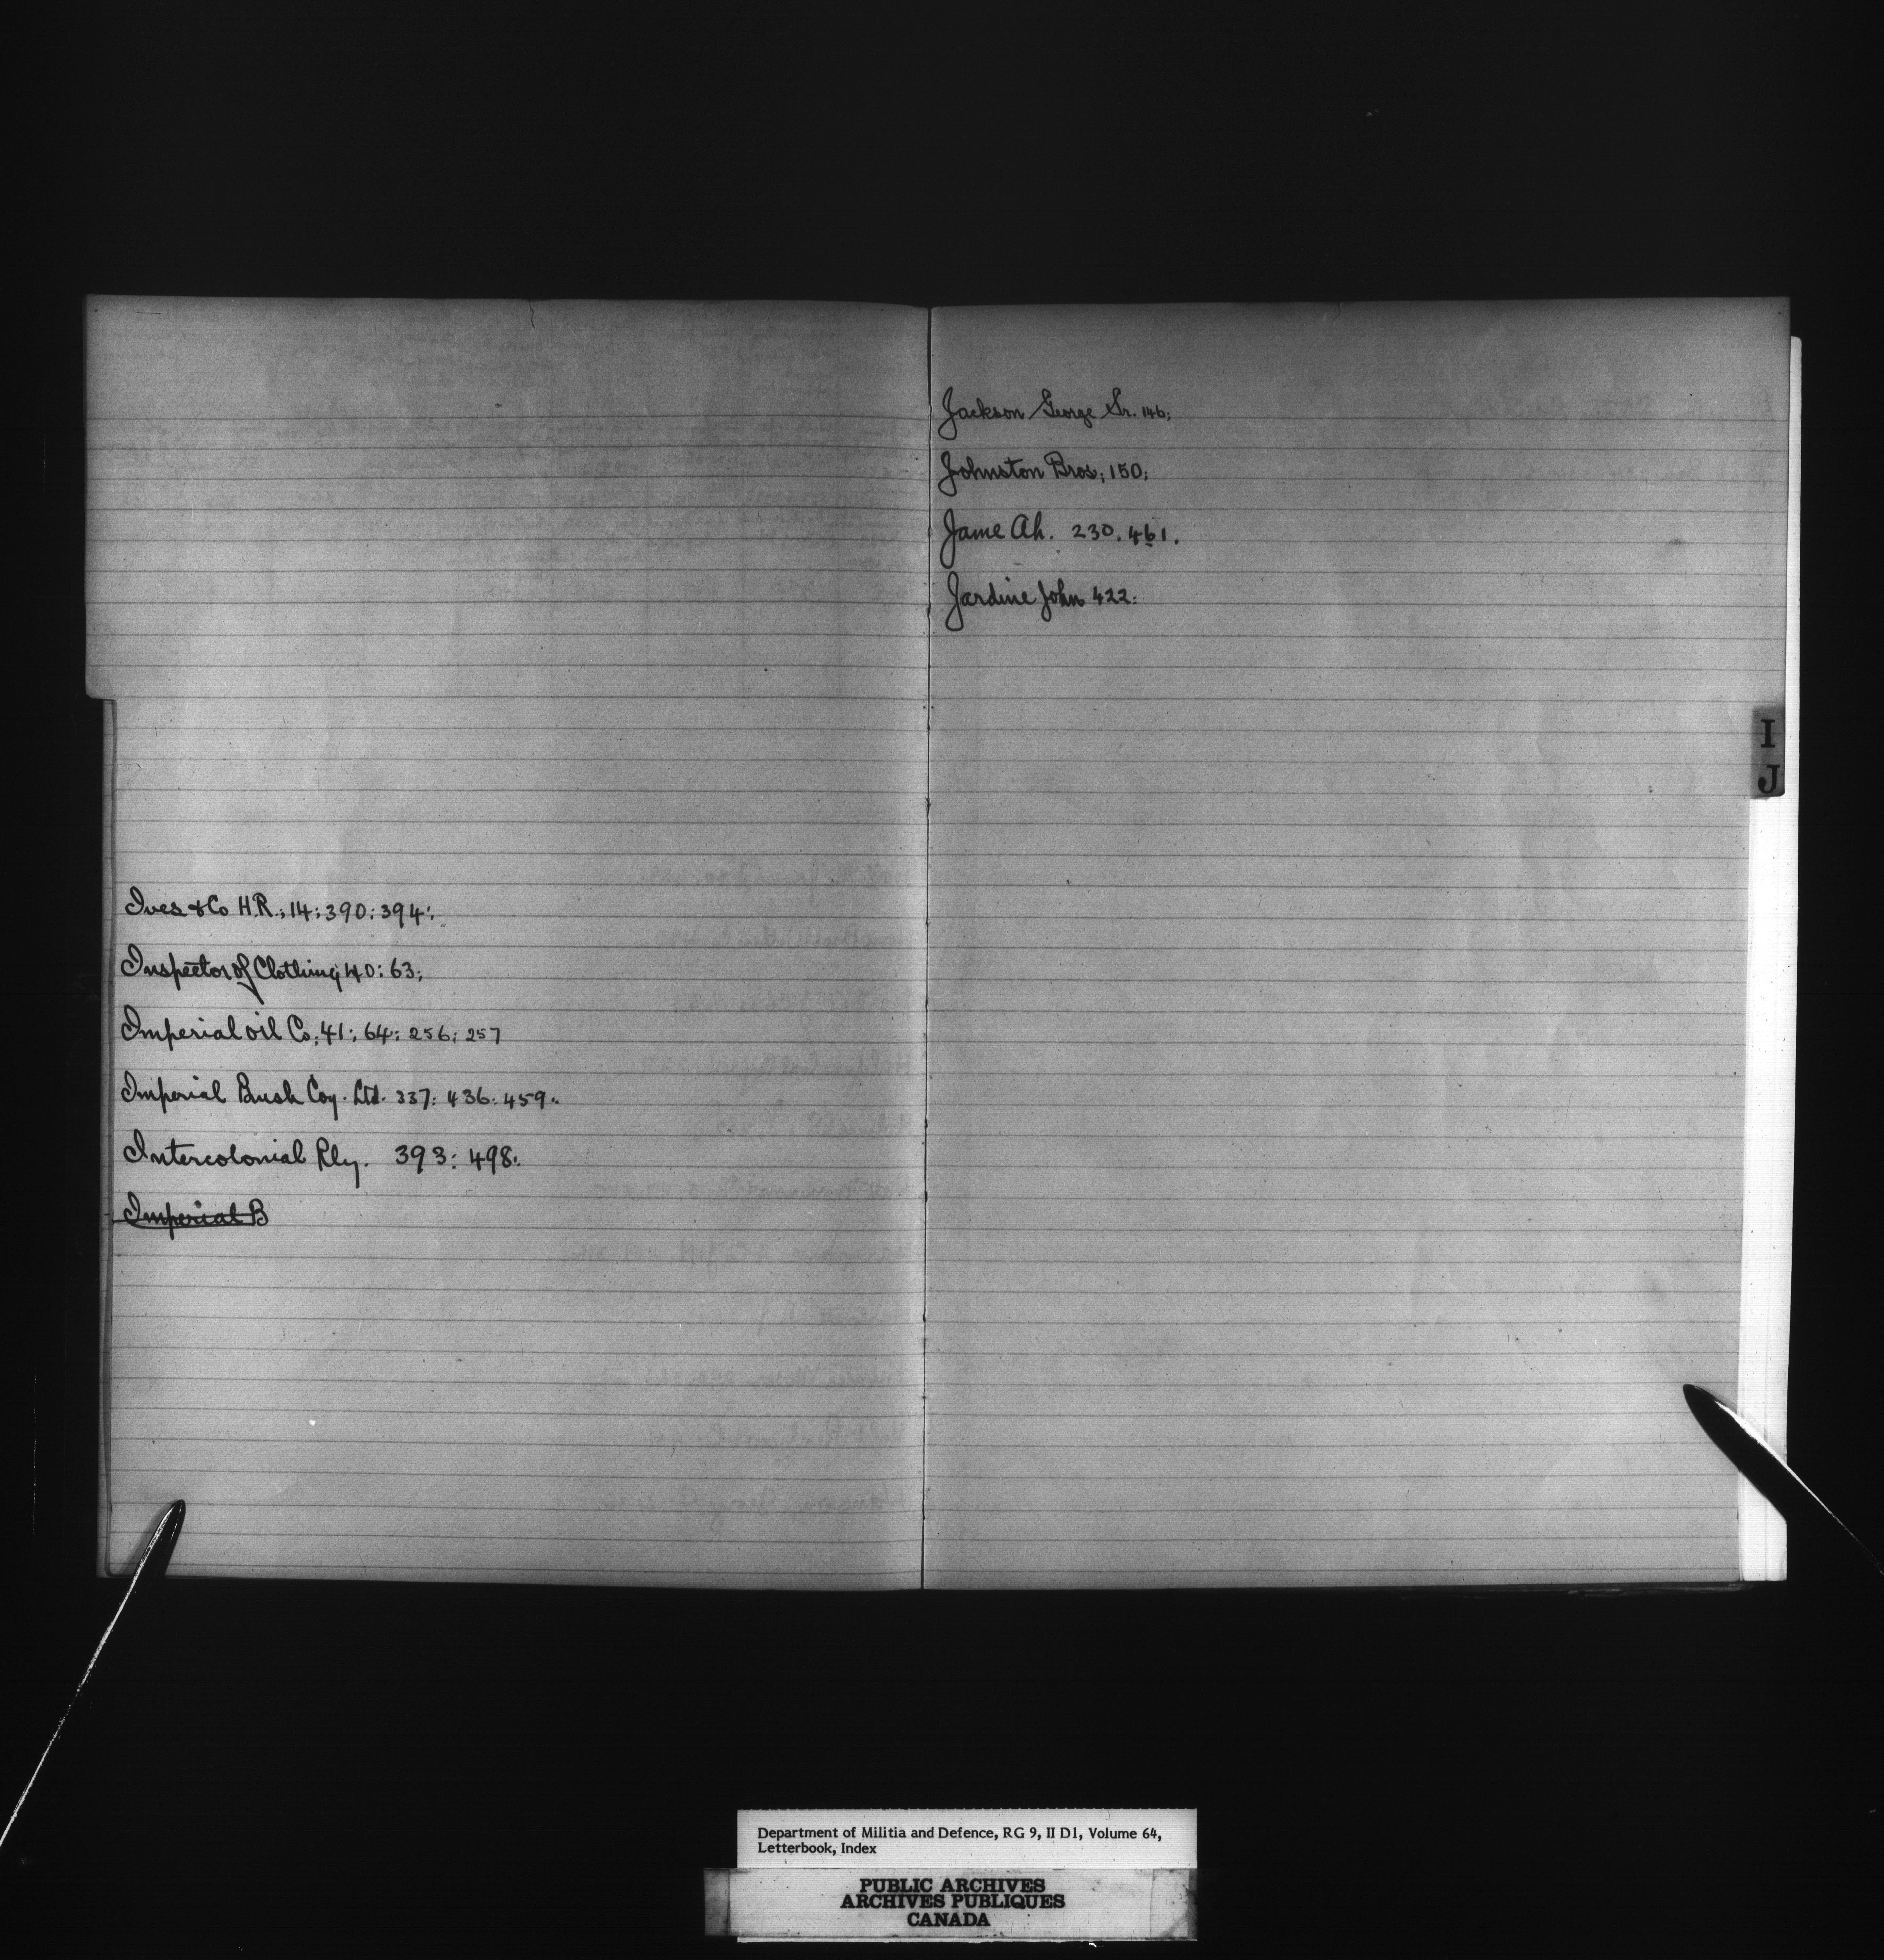 Ives & Co H.R.; 14; 390; 394;
Inspector of Clothing 40: 63;
Imperial Oil Co; 41; 64; 256; 257
Imperial Bush Coy. Ltd. 337: 436: 459:
Intercolonial Rly. 393: 498:
Imperial B
Jackson George Sr. 146;
Johnston Bros; 150;
Jame Ah. 230. 461.
Jardine John 422:
I
J
Department of Militia and Defence, RG 9, II D1, Volume 64,
Letterbook, Index
PUBLIC ARCHIVES
ARCHIVES PUBLIQUES
CANADA